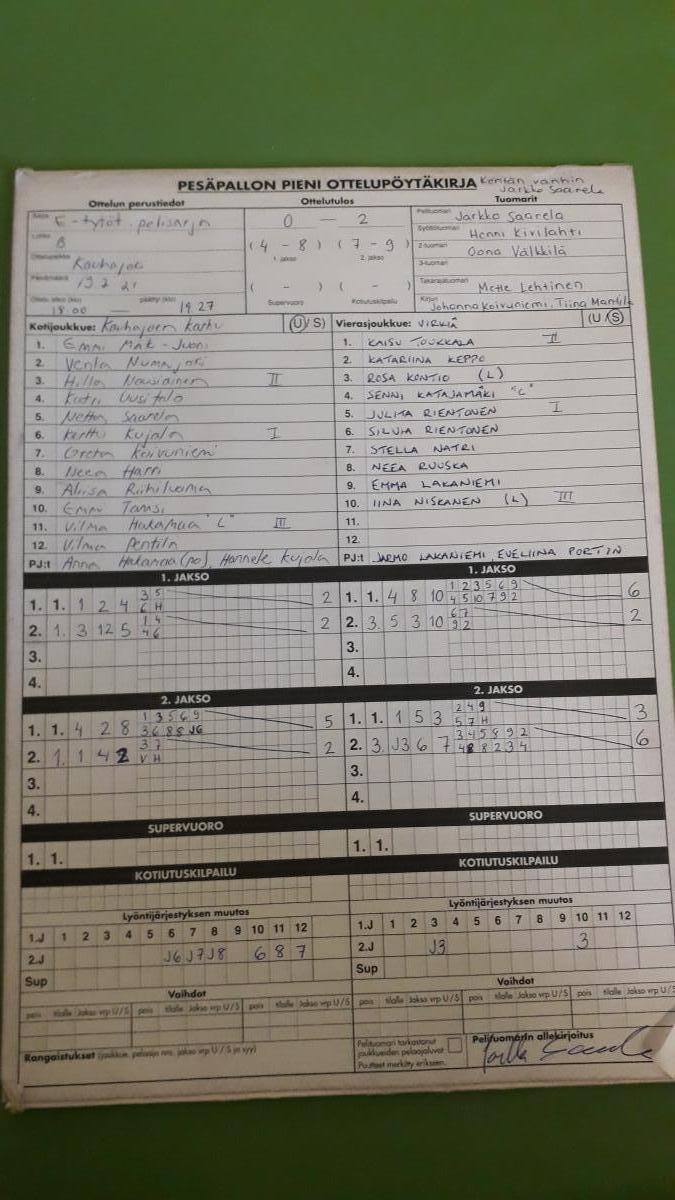 PESÄPALLON PIENI OTTELUPÖYTÄKIRJA Kentän vanhin
Jarkko Saarela
Ottelun perustiedot Ottelutulos Tuomarit
E-tytöt pelisarja 0 — 2 Pelituomari Jarkko Saarela
B (4 - 8) (7 - 9) Syöttötuomari Henni Kivilahti
1. jakso 2. jakso 2-tuomari Oona Välkkilä
Kauhajoki 3-tuomari
Päivämäärä 19.2.21 ( - ) ( - ) Takarajatuomari Mette Lehtinen
18.00 — päättyi (klo) 19.27 Supervuoro Kotiutuskilpailu Kirjuri Johanna Koivuniemi, Tiina Mantila
Kotijoukkue: Kauhajoen Karhu (U/S) Vierasjoukkue: VIRKIÄ (U/S)
1. 1. KAISU TOUKKALA II
2. Venla 2. KATARIINA KEPPO
3. Hilla Nousiainen II 3. ROSA KONTIO (L)
4. Katri Uusitalo 4. SENNI KATAJAMÄKI "C"
5. Netta Saarela 5. JULITA RIENTONEN I
6. Kerttu Kujala I 6. SILVIA RIENTONEN
7. Greta Koivuniemi 7. STELLA NATRI
8. Neea Harri 8. NEEA RUUSKA
9. Aliisa Riihiluoma 9. EMMA LAKANIEMI
10. Emmi 10. IINA NISKANEN (L) III
11. Vilma Hakamaa "C" III 11.
12. Vilma Penttilä 12.
PJ:t Anna Hakamaa (po), Hannele Kujala PJ:t JARMO LAKANIEMI, EVELIINA PORTIN
1. JAKSO 1. JAKSO
3 5 1 2 3 5 6 9
1. 1. 1 2 4 6 H 2 1. 1. 4 8 10 4 5 10 7 9 2 6
1 4 6 7
2. 1. 3 12 5 4 6 2 2. 3. 5 3 10 9 2 2
3. 3.
4. 4.
2. JAKSO 2. JAKSO
1 3 5 6 9 2 4 9
1. 1. 4 2 8 3 6 8 8 J6 5 1. 1. 1 5 3 5 7 H 3
3 7 3 4 5 8 9 2
2. 1. 1 4 2 V H 2 2. 3. J3 6 7 4 8 8 2 3 4 6
3. 3.
4. 4.
SUPERVUORO SUPERVUORO
1. 1. 1. 1.
KOTIUTUSKILPAILU KOTIUTUSKILPAILU
Lyöntijärjestyksen muutos Lyöntijärjestyksen muutos
1.J 1 2 3 4 5 6 7 8 9 10 11 12 1.J 1 2 3 4 5 6 7 8 9 10 11 12
2.J J6 J7 J8 6 8 7 2.J J3 3
Sup Sup
Vaihdot Vaihdot
pois tilalle Jakso vrp U/S pois tilalle Jakso vrp U/S pois tilalle Jakso vrp U/S pois tilalle Jakso vrp U/S pois tilalle Jakso vrp U/S pois tilalle Jakso vrp U/S
Rangaistukset (joukkue, pelaajan nro, jakso vrp U/S ja syy) Pelituomari tarkastanut joukkueiden pelaajaluvat Puutteet merkitty erikseen. Pelituomarin allekirjoitus